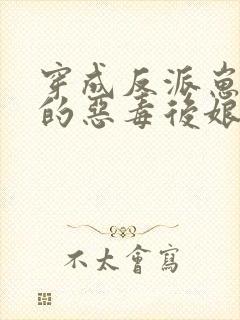 穿成反派崽
的惡毒後娘
不太會寫